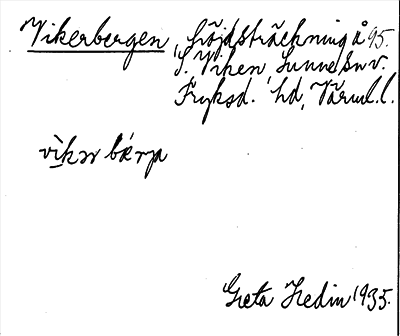 Vikerbergen, höjdsträckning å 95.
S. Viken, Sunne sn v.
Fryksd. hd, Värml. l.
vikər bærja
Greta Hedin 1935.